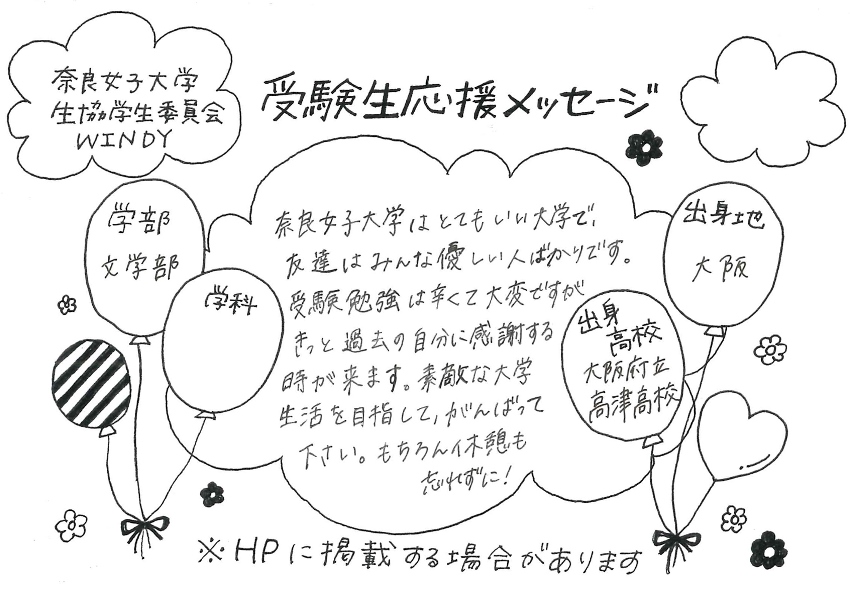 奈良女子大学
生協学生委員会
WINDY
受験生応援メッセージ
学部
文学部
学科
奈良女子大学はとてもいい大学で、
友達はみんな優しい人ばかりです。
受験勉強は辛くて大変ですが
きっと過去の自分に感謝する
時が来ます。素敵な大学
生活を目指して、がんばって
下さい。もちろん休憩も
忘れずに!
出身地
大阪
出身
高校
大阪府立
高津高校
※HPに掲載する場合があります